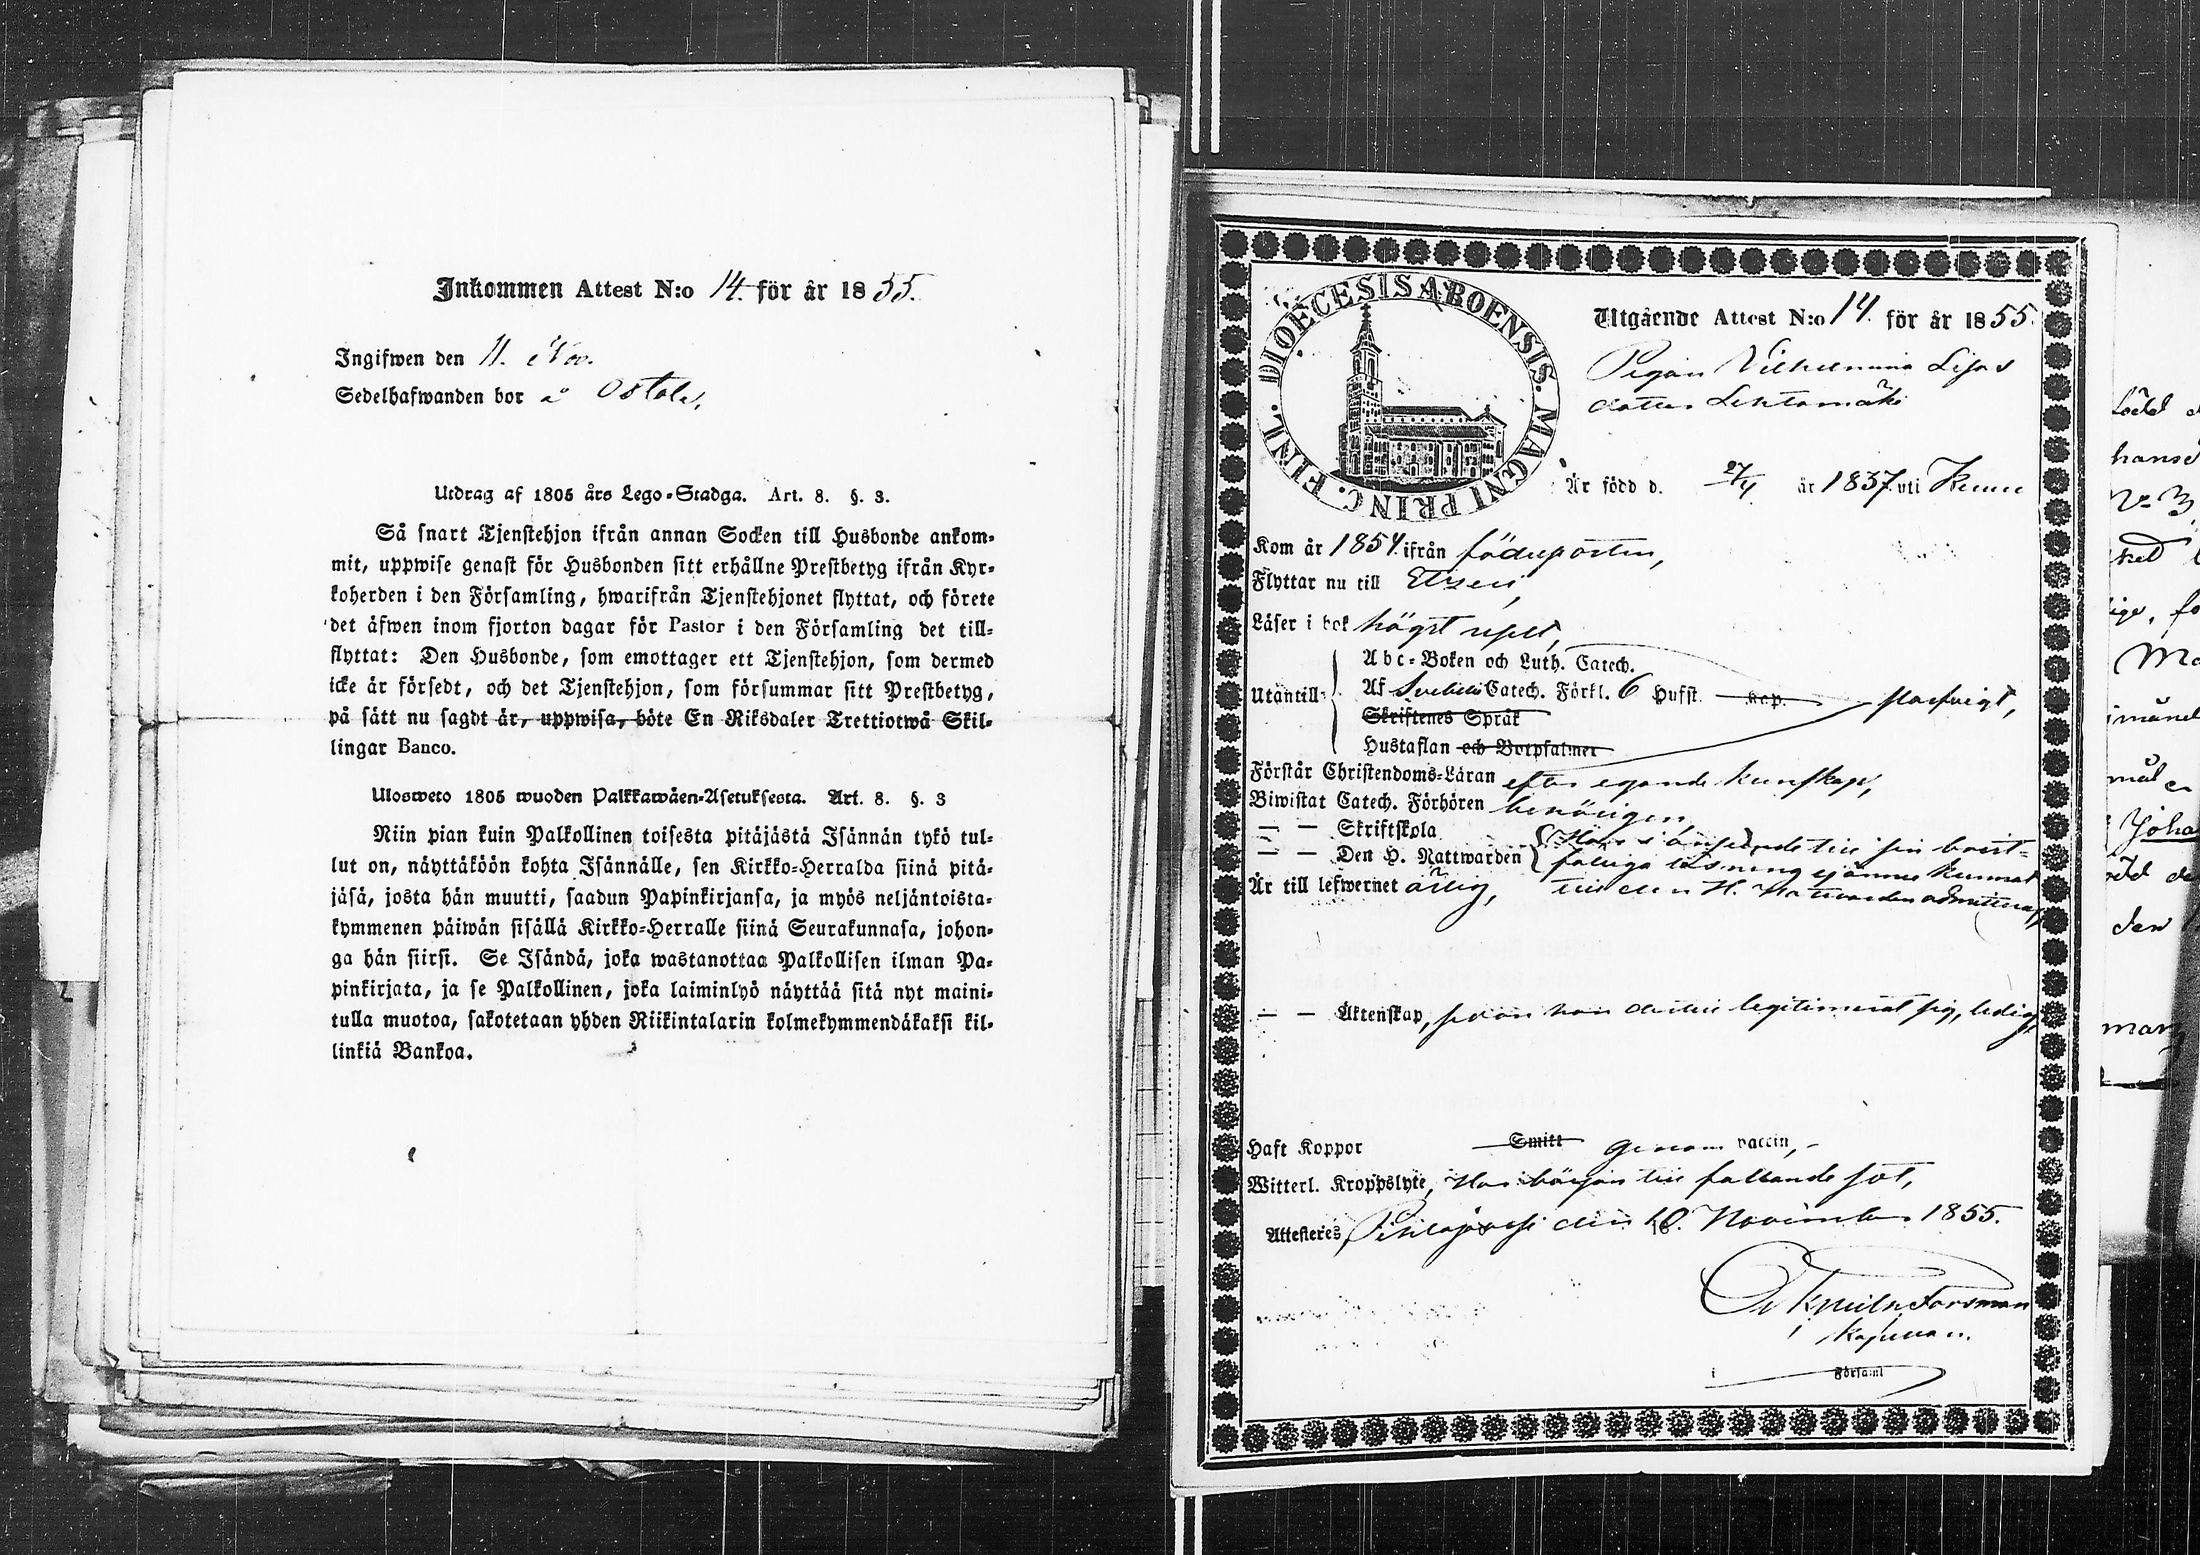 Inkommen Attest N:o 14. för år 1855.
Ingifwen den 11. Nov.
Sedelhafwanden bor å Ostola,
Utdrag af 1805 års Lego-Stadga. Art. 8. §. 3.
Så snart Tjenstehjon ifrån annan Socken till Husbonde ankom-
mit, uppwise genast för Husbonden sitt erhållne Prestbetyg ifrån Kyr-
koherden i den Församling, hwarifrån Tjenstehjonet flyttat, och förete
det äfwen inom fjorton dagar för Pastor i den Församling det till-
flyttat: Den Husbonde, som emottager ett Tjenstehjon, som dermed
icke är försedt, och det Tjenstehjon, som försummar sitt Prestbetyg,
på sätt nu sagdt är, uppwisa, böte En Riksdaler Trettiotwå Skil-
lingar Banco.
Ulosweto 1805 wuoden Palkkawäen-Asetuksesta. Art. 8. §. 3
Niin pian kuin Palkollinen toisesta pitäjästä Isännän tykö tul-
lut on, näyttäköön kohta Isännälle, sen Kirkko-Herralda siinä pitä-
jäsä, josta hän muutti, saadun Papinkirjansa, ja myös neljäntoista-
kymmenen päiwän sisällä Kirkko-Herralle siinä Seurakunnasa, johon-
ga hän siirsi. Se Isändä, joka wastanottaa Palkollisen ilman Pa-
pinkirjata, ja se Palkollinen, joka laiminlyö näyttää sitä nyt maini-
tulla muotoa, sakotetaan yhden Riikintalarin kolmekymmendäkaksi kil-
linkiä Bankoa.
DIOECESIS ABOENSIS. MAGNI PRINC. FINL.
Utgående Attest N:o 14. för år 1855.
Pigan Vilhelmina Lisas
dotter Lehtomäki
Är född d. 27/4 år 1837. uti Keuru
Kom år 1854. ifrån födseorten,
Flyttar nu till Etseri,
Läser i bok högst uselt,
Abc-Boken och Luth. Catech.
Utantill: Af Svebelii Catech. Förkl. 6 Hufst. Kap. florsveigt,
Skriftenes Språk
Hustaflan och Botpsalmer
Förstår Christendoms-Läran efter egande kunskap,
Biwistat Catech. Förhören
— — Skriftskola
— — Den H. Nattwarden Har i anseende till sin brist-
fälliga läsning ej ännu kunnat
till den H. Nattvarden admitteras
Är till lefwernet ärlig,
— — Äktenskap, sedan hon dertill legitimerat sig, ledig,
Haft Koppor Smitt genom vaccin,
Witterl. Kroppslyte, Har början till fallande sot,
Attesteres, Pihlajavesi den 10. November 1855.
Forsman
Kapellan.
i Församl